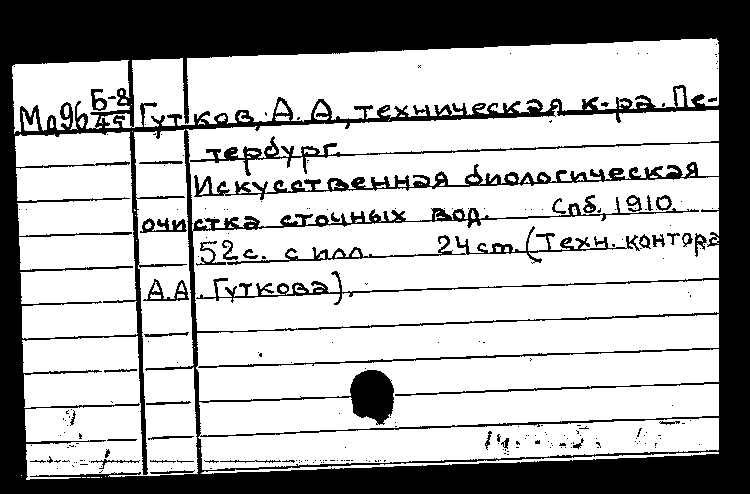 Мд96 Б-8/45 Гутков, А. А., техническая к-ра. Пе-
тербург.
Искусственная биологическая
очистка сточных вод. Спб., 1910.
52 с. с илл. 24 ст. (Техн. контора
А.А. Гуткова).